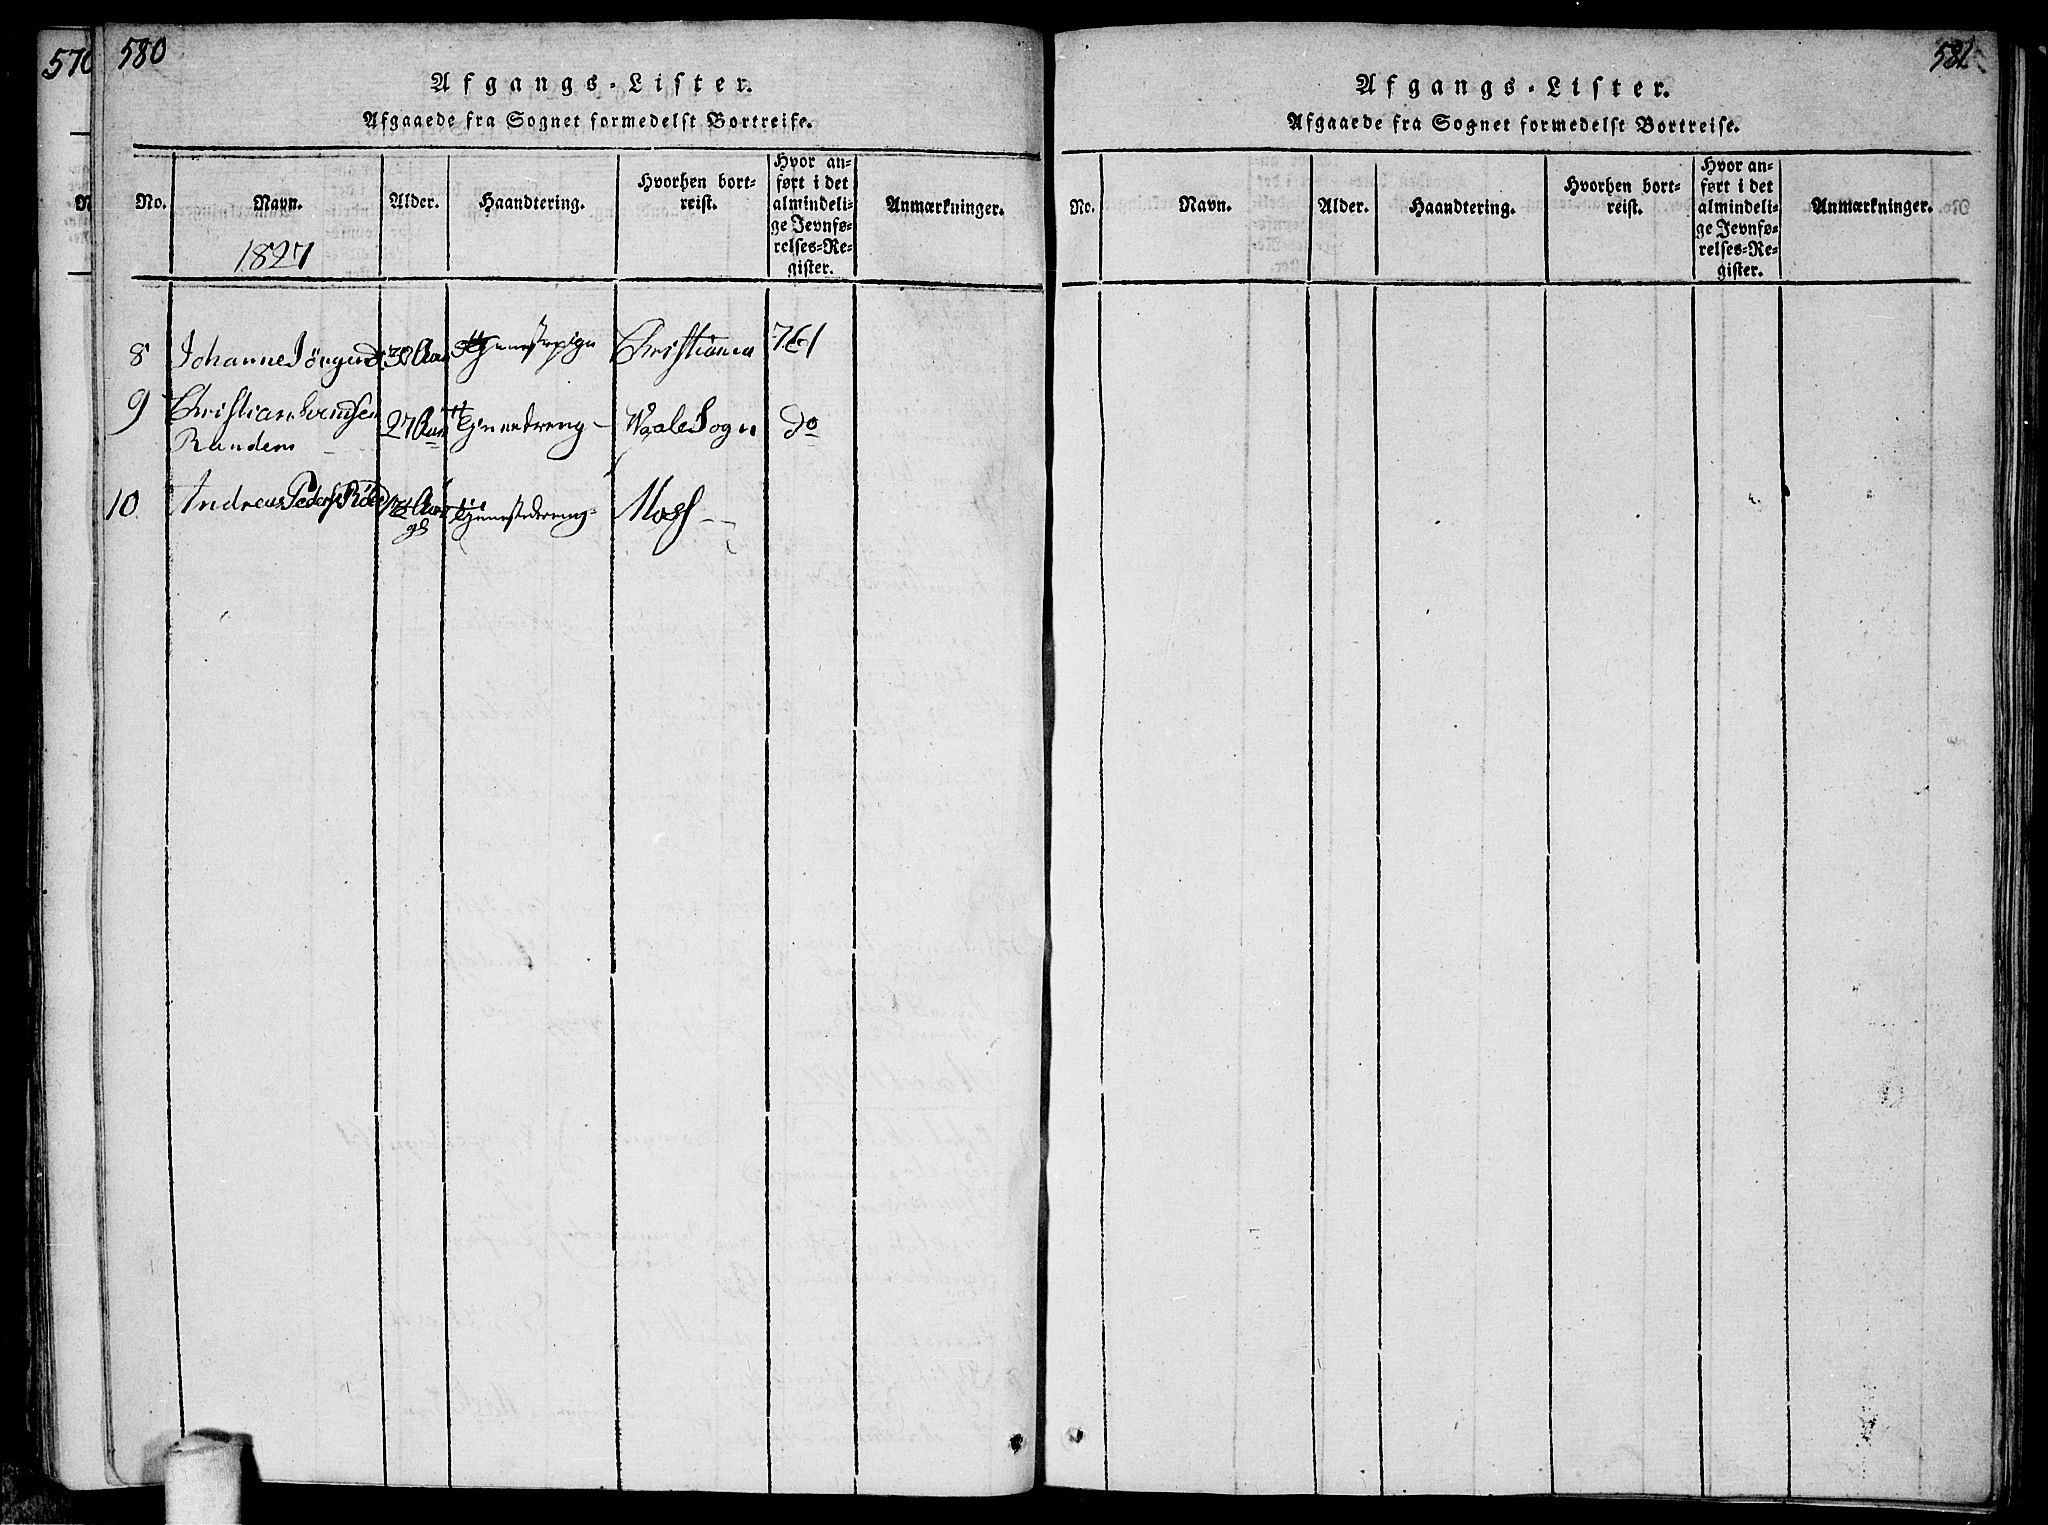 570
580
Afgangs-Lister.
Afgaaede fra Sognet formedelst Bortreise.
No.
Navn.
Alder.
Haandtering.
Hvorhen bort-
reist.
Hvor an-
ført i det
almindeli-
ge Jevnfø-
relses-Re-
gister.
Anmærkninger.
1827
8 Johanne Jörgensd. 30 Aar Tjenestepige Christiania 761
9 Christian Svendsen
Randem 27 Aar Tjenestedreng Waale Sogn do
10 Andreas Peders. Aar
gl Tjenestedreng Moss
581
Afgangs-Lister.
Afgaaede fra Sognet formedelst Bortreise.
No.
Navn.
Alder.
Haandtering.
Hvorhen bort-
reist.
Hvor an-
ført i det
almindeli-
ge Jevnfø-
relses-Re-
gister.
Anmærkninger.